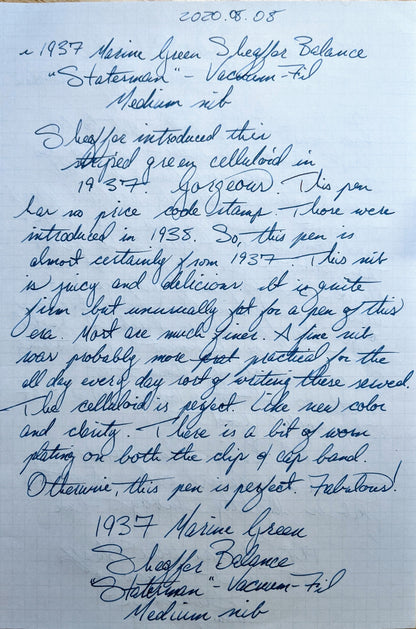 2020.08.08
1937 Marine Green Sheaffer Balance
"Statesman" - Vacuum-Fil
Medium nib
Sheaffer introduced this
striped green celluloid in
1937. Gorgeous. This pen
has no price code stamp. Those were
introduced in 1938. So, this pen is
almost certainly from 1937. This nib
is juicy and delicious. It is quite
firm but unusually fat for a pen of this
era. Most are much finer. A fine nib
was probably more practical for the
all day every day sort of writing these served.
The celluloid is perfect. Like new color
and clarity. There is a bit of worn
plating on both the clip & cap band.
Otherwise, this pen is perfect. Fabulous!
1937 Marine Green
Sheaffer Balance
"Statesman" - Vacuum-Fil
Medium nib